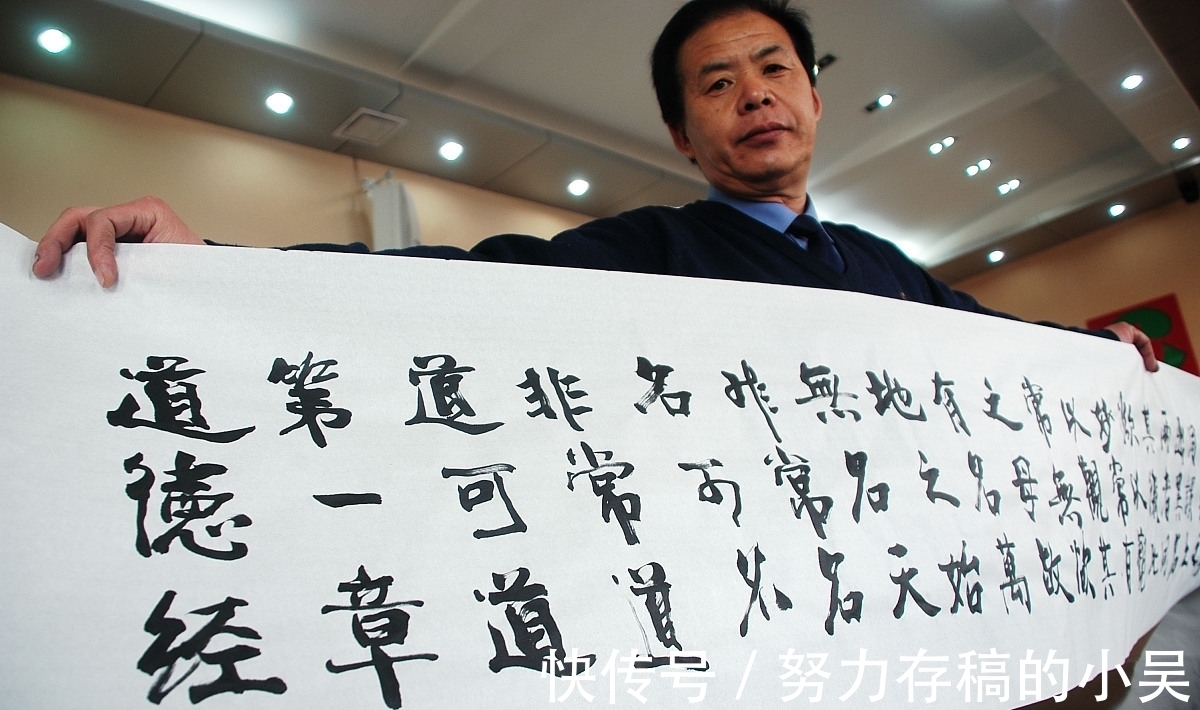 道德经
第一章
道可道
非常道
名可名
非常名
無名天
地之始
有名萬
之母故
常無欲
以觀其
妙常有
欲以
其徼此
兩者同
快传号 / 努力存稿的小吴